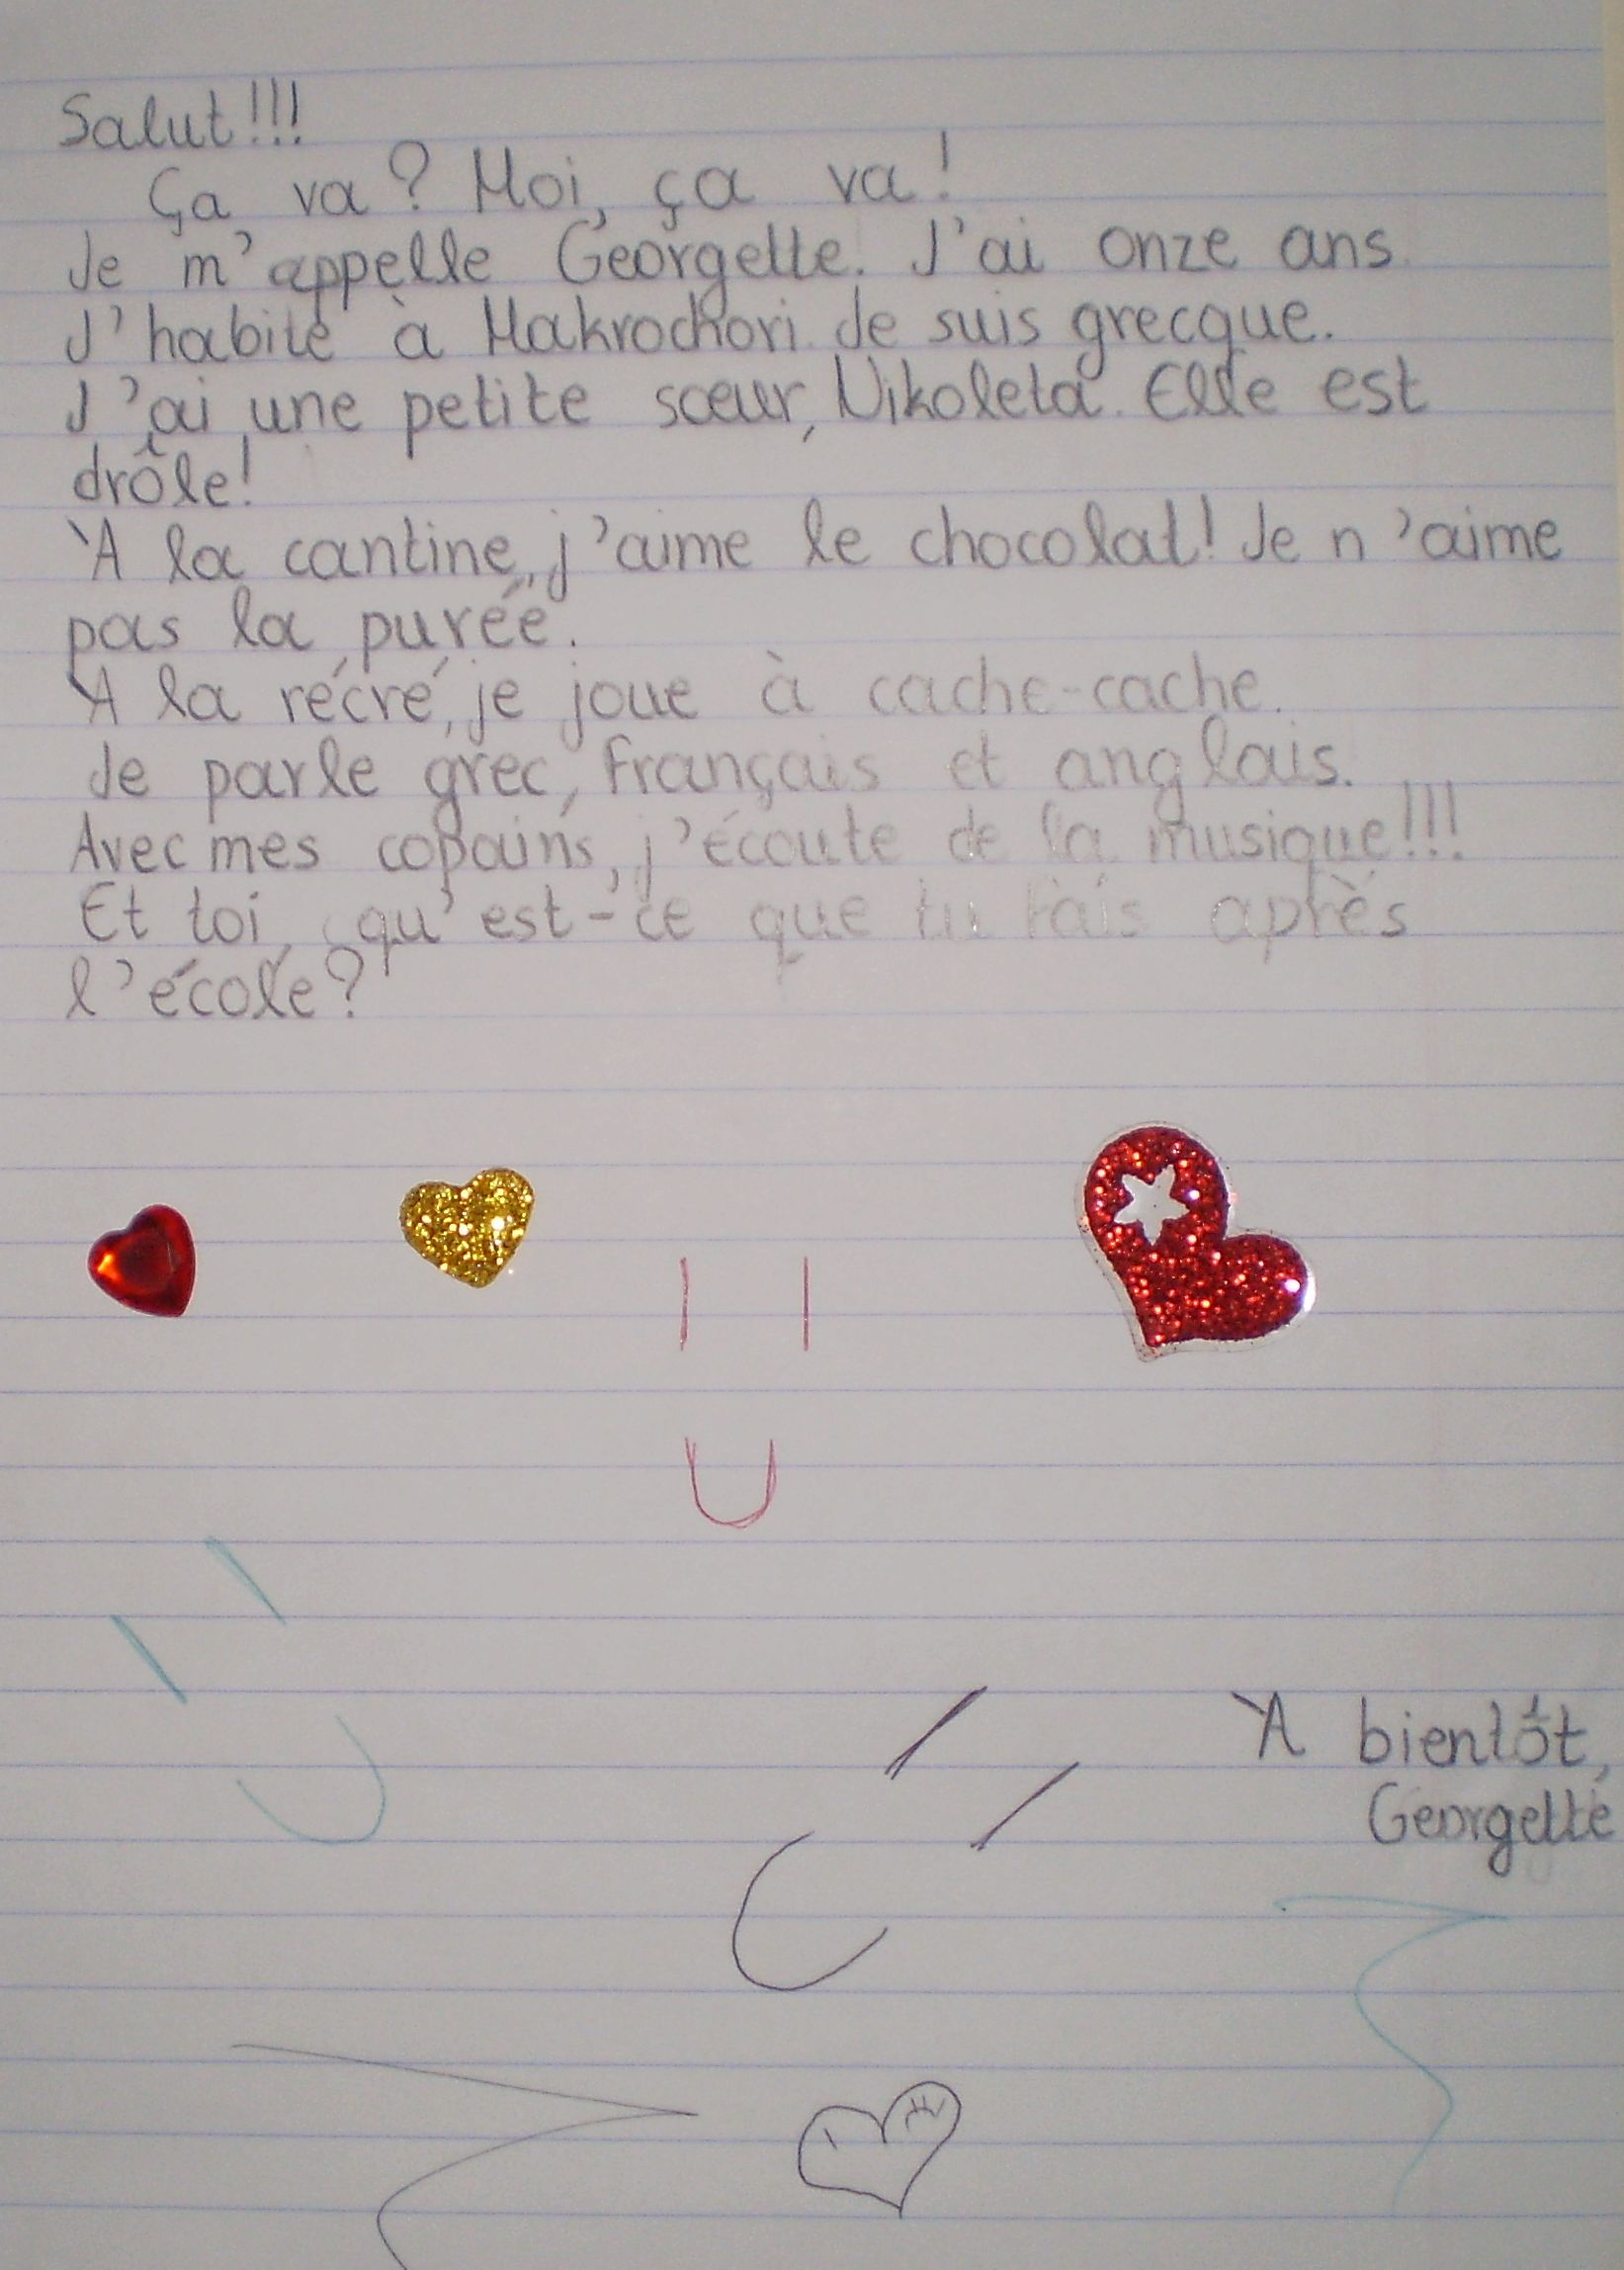 Salut!!!
Ça va? Moi, ça va!
Je m'appelle Georgette. J'ai onze ans.
J'habite à Makrochori. Je suis grecque.
J'ai une petite sœur, Nikoleta. Elle est
drôle!
À la cantine, j'aime le chocolat! Je n'aime
pas la purée.
À la récré, je joue à cache-cache.
Je parle grec, français et anglais.
Avec mes copains, j'écoute de la musique!!!
Et toi, qu'est-ce que tu fais après
l'école?
À bientôt,
Georgette